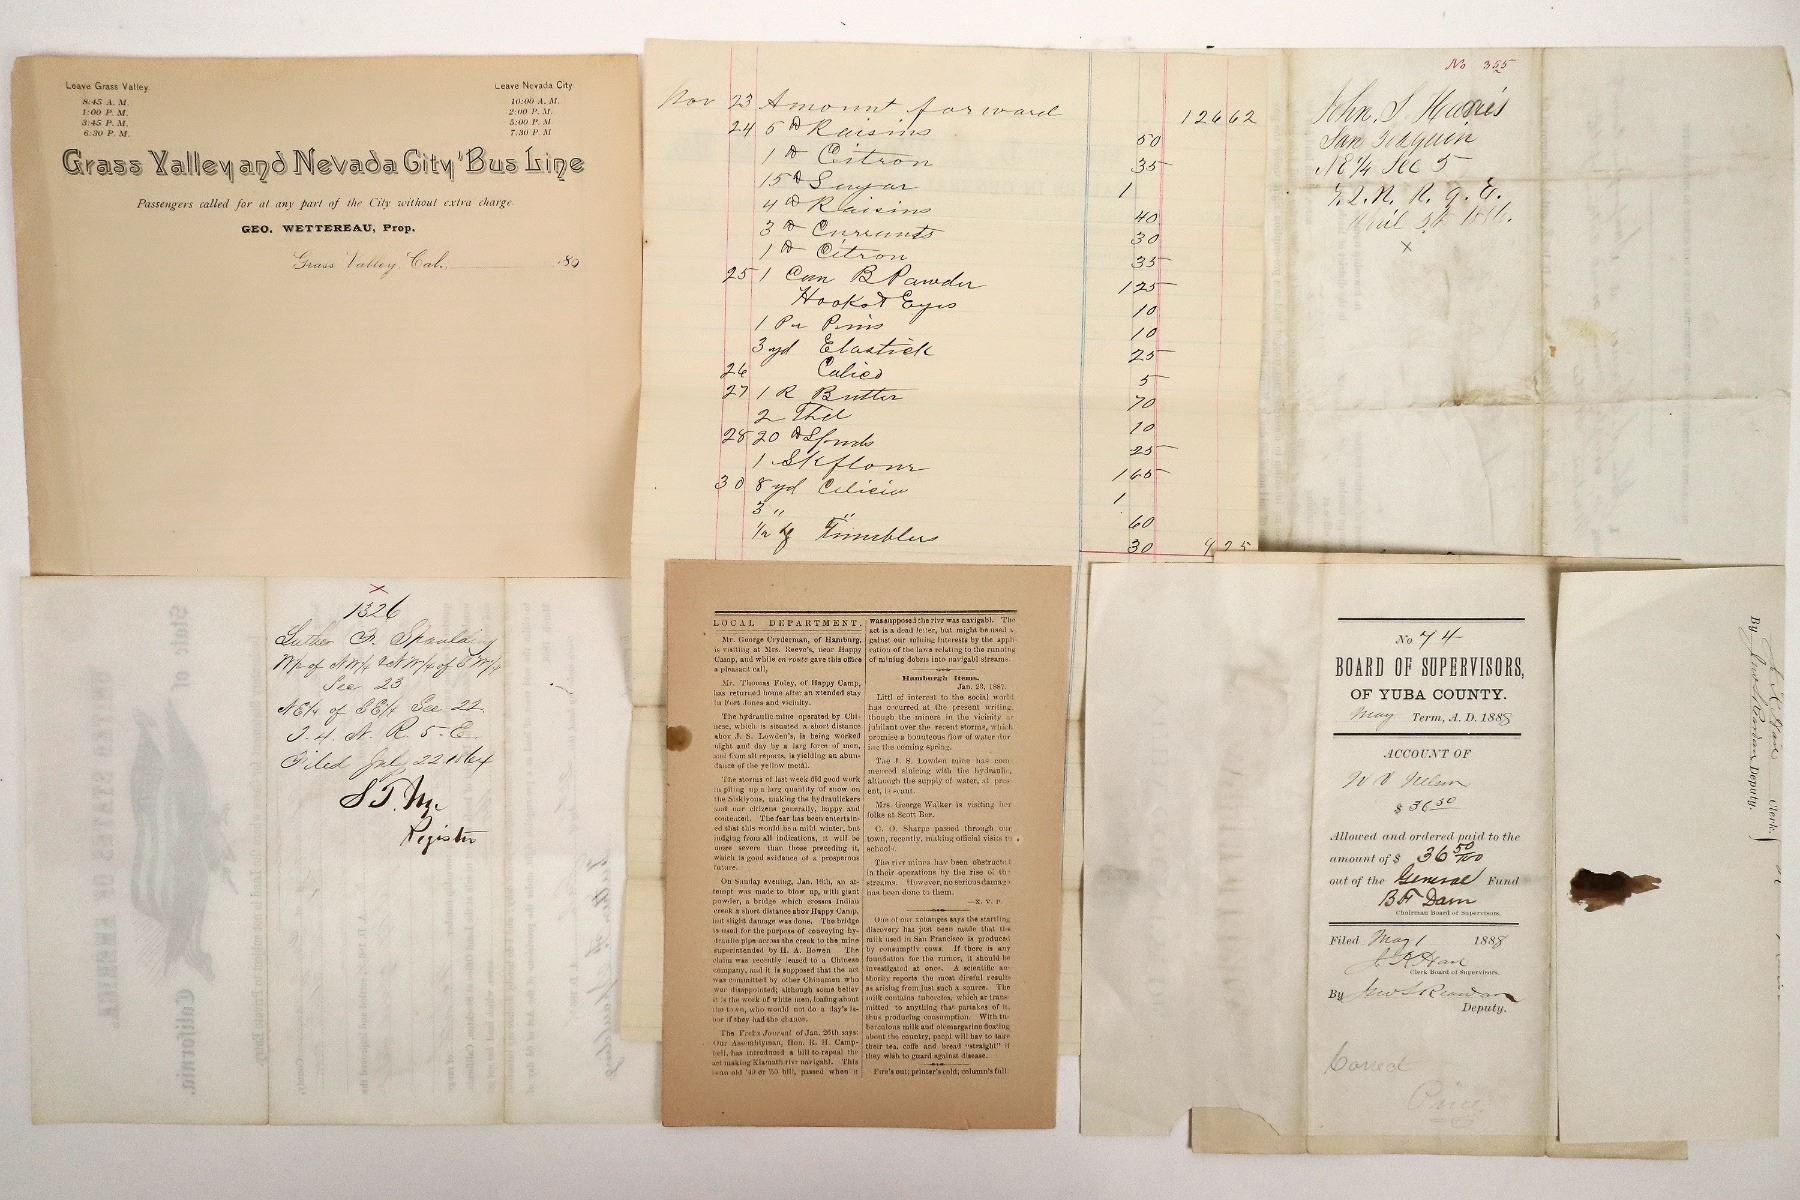 Leave Grass Valley.
8:45 A. M.
1:00 P. M.
3:45 P. M.
6:30 P. M.
Leave Nevada City
10:00 A. M.
2:00 P. M.
5:00 P. M
7:30 P. M
Grass Valley and Nevada City 'Bus Line
Passengers called for at any part of the City without extra charge.
GEO. WETTEREAU, Prop.
Grass Valley, Cal., 189
Nov 23 Amount forward 126 62
24 5 # Raisins 50
1 # Citron 35
15 # Sugar 1
4 # Raisins 40
3 # Currants 30
1 # Citron 35
25 1 Can B Powder 1 25
Hooks & Eyes 10
1 Pa Pins 10
3 yd Elastick 25
26 Calico 5
27 1 R Butter 70
2 Thd 10
28 20 # Spuds 25
1 Sk flour 1 65
30 8 yd 1
3 " " 60
1/2 Tumblers 30 9 25
No 355
John S. Harris
San Joaquin
Sec 5
X
X
1326
Luther
Sec 23
NE 1/4 of SE 1/4 Sec 22
T. 4. N. R. 5. E.
Filed July 22 1864
Register
State of California.
UNITED STATES OF AMERICA.
LOCAL DEPARTMENT.
Mr. George Cryderman, of Hamburg,
is visiting at Mrs. Reeve's, near Happy
Camp, and while en route gave this office
a pleasant call,
Mr. Thomas Foley, of Happy Camp,
has returned home after an xtended stay
in Fort Jones and vicinity.
The hydraulic mine operated by Chi-
nese, which is situated a short distance
abov J. S. Lowden's, is being worked
night and day by a larg force of men,
and from all reports, is yielding an abun-
dance of the yellow metal.
The storms of last week did good work
in piling up a larg quantity of snow on
the Siskiyous, making the hydraulickers
and our citizens generally, happy and
contented. The fear has been entertain-
ed that this would be a mild winter, but
judging from all indications, it will be
more severe than those preceding it,
which is good evidence of a prosperous
future.
On Sunday evening, Jan. 16th, an at-
tempt was made to blow up, with giant
powder, a bridge which crosses Indian
creek a short distance abov Happy Camp,
but slight damage was done. The bridge
is used for the purpose of conveying hy-
draulic pipe across the creek to the mine
superintended by H. A. Bowen The
claim was recently leased to a Chinese
company, and it is supposed that the act
was committed by other Chinamen who
wer disappointed; although some belier
it is the work of white men, loafing about
the town, who would not do a day's la-
bor if they had the chance.
The Yreka Journal of Jan. 26th says:
Our Assemblyman, Hon. R. H. Camp-
bell, has introduced a bill to repeal the
act making Klamath rivr navigabl. This
was an old '49 or '50 bill, passed when it
was supposed the rivr was navigabl. The
act is a dead letter, but might be used a
gainst our mining interests by the appli
cation of the laws relating to the running
of mining debris into navigabl streams.
Hamburgh Items.
Jan. 23, 1887.
Littl of interest to the social world
has occurred at the present writing,
though the miners in the vicinity ar
jubilant over the recent storms, which
promise a bounteous flow of water dur-
ing the coming spring.
The J. S. Lowden mine has com
menced sluicing with the hydraulic,
although the supply of water, at pres
ent, is scant.
Mrs. George Walker is visiting her
folks at Scott Bar.
C. O. Sharpe passed through our
town, recently, making official visits to
schools.
The rivr mines hav been obstructed
in their operations by the rise of the
streams. However, no serious damage
has been done to them.
—X. Y. P.
One of our xchanges says the startling
discovery has just been made that the
milk used in San Francisco is produced
by consumptiv cows. If there is any
foundation for the rumor, it should be
investigated at once. A scientific au-
thority reports the most direful results
as arising from just such a source. The
milk contains tubercles, which ar trans-
mitted to anything that partakes of it,
thus producing consumption. With tu-
berculous milk and oleomargarine floating
about the country, peopl will hav to take
their tea, coffe and bread "straight" if
they wish to guard against disease.
Fire's out; printer's cold; column's full.
No 74
BOARD OF SUPERVISORS,
OF YUBA COUNTY.
May Term, A. D. 1888
ACCOUNT OF
Nelson
$ 36 50
Allowed and ordered paid to the
amount of $ 36 50/100
out of the General Fund
B F Dam
Chairman Board of Supervisors.
Filed May 1 1888
Clerk Board of Supervisors.
By
Deputy.
Clerk.
By Deputy.